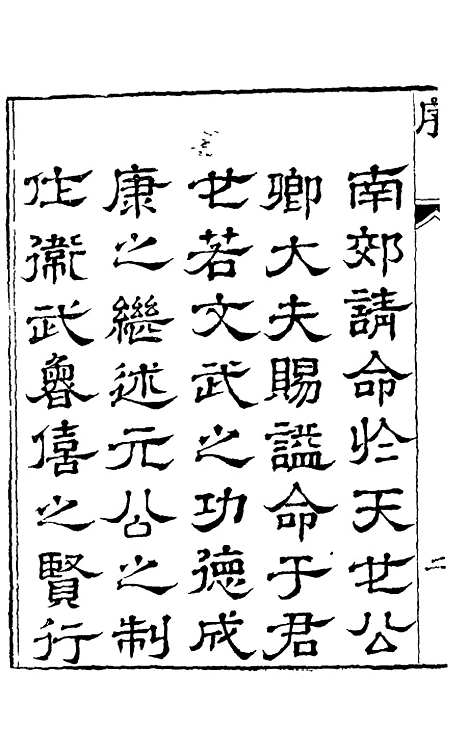 序
二
南郊請命於天其公
卿大夫賜謚命于君
其若文武之功德成
康之繼述元公之制
作衛武魯僖之賢行